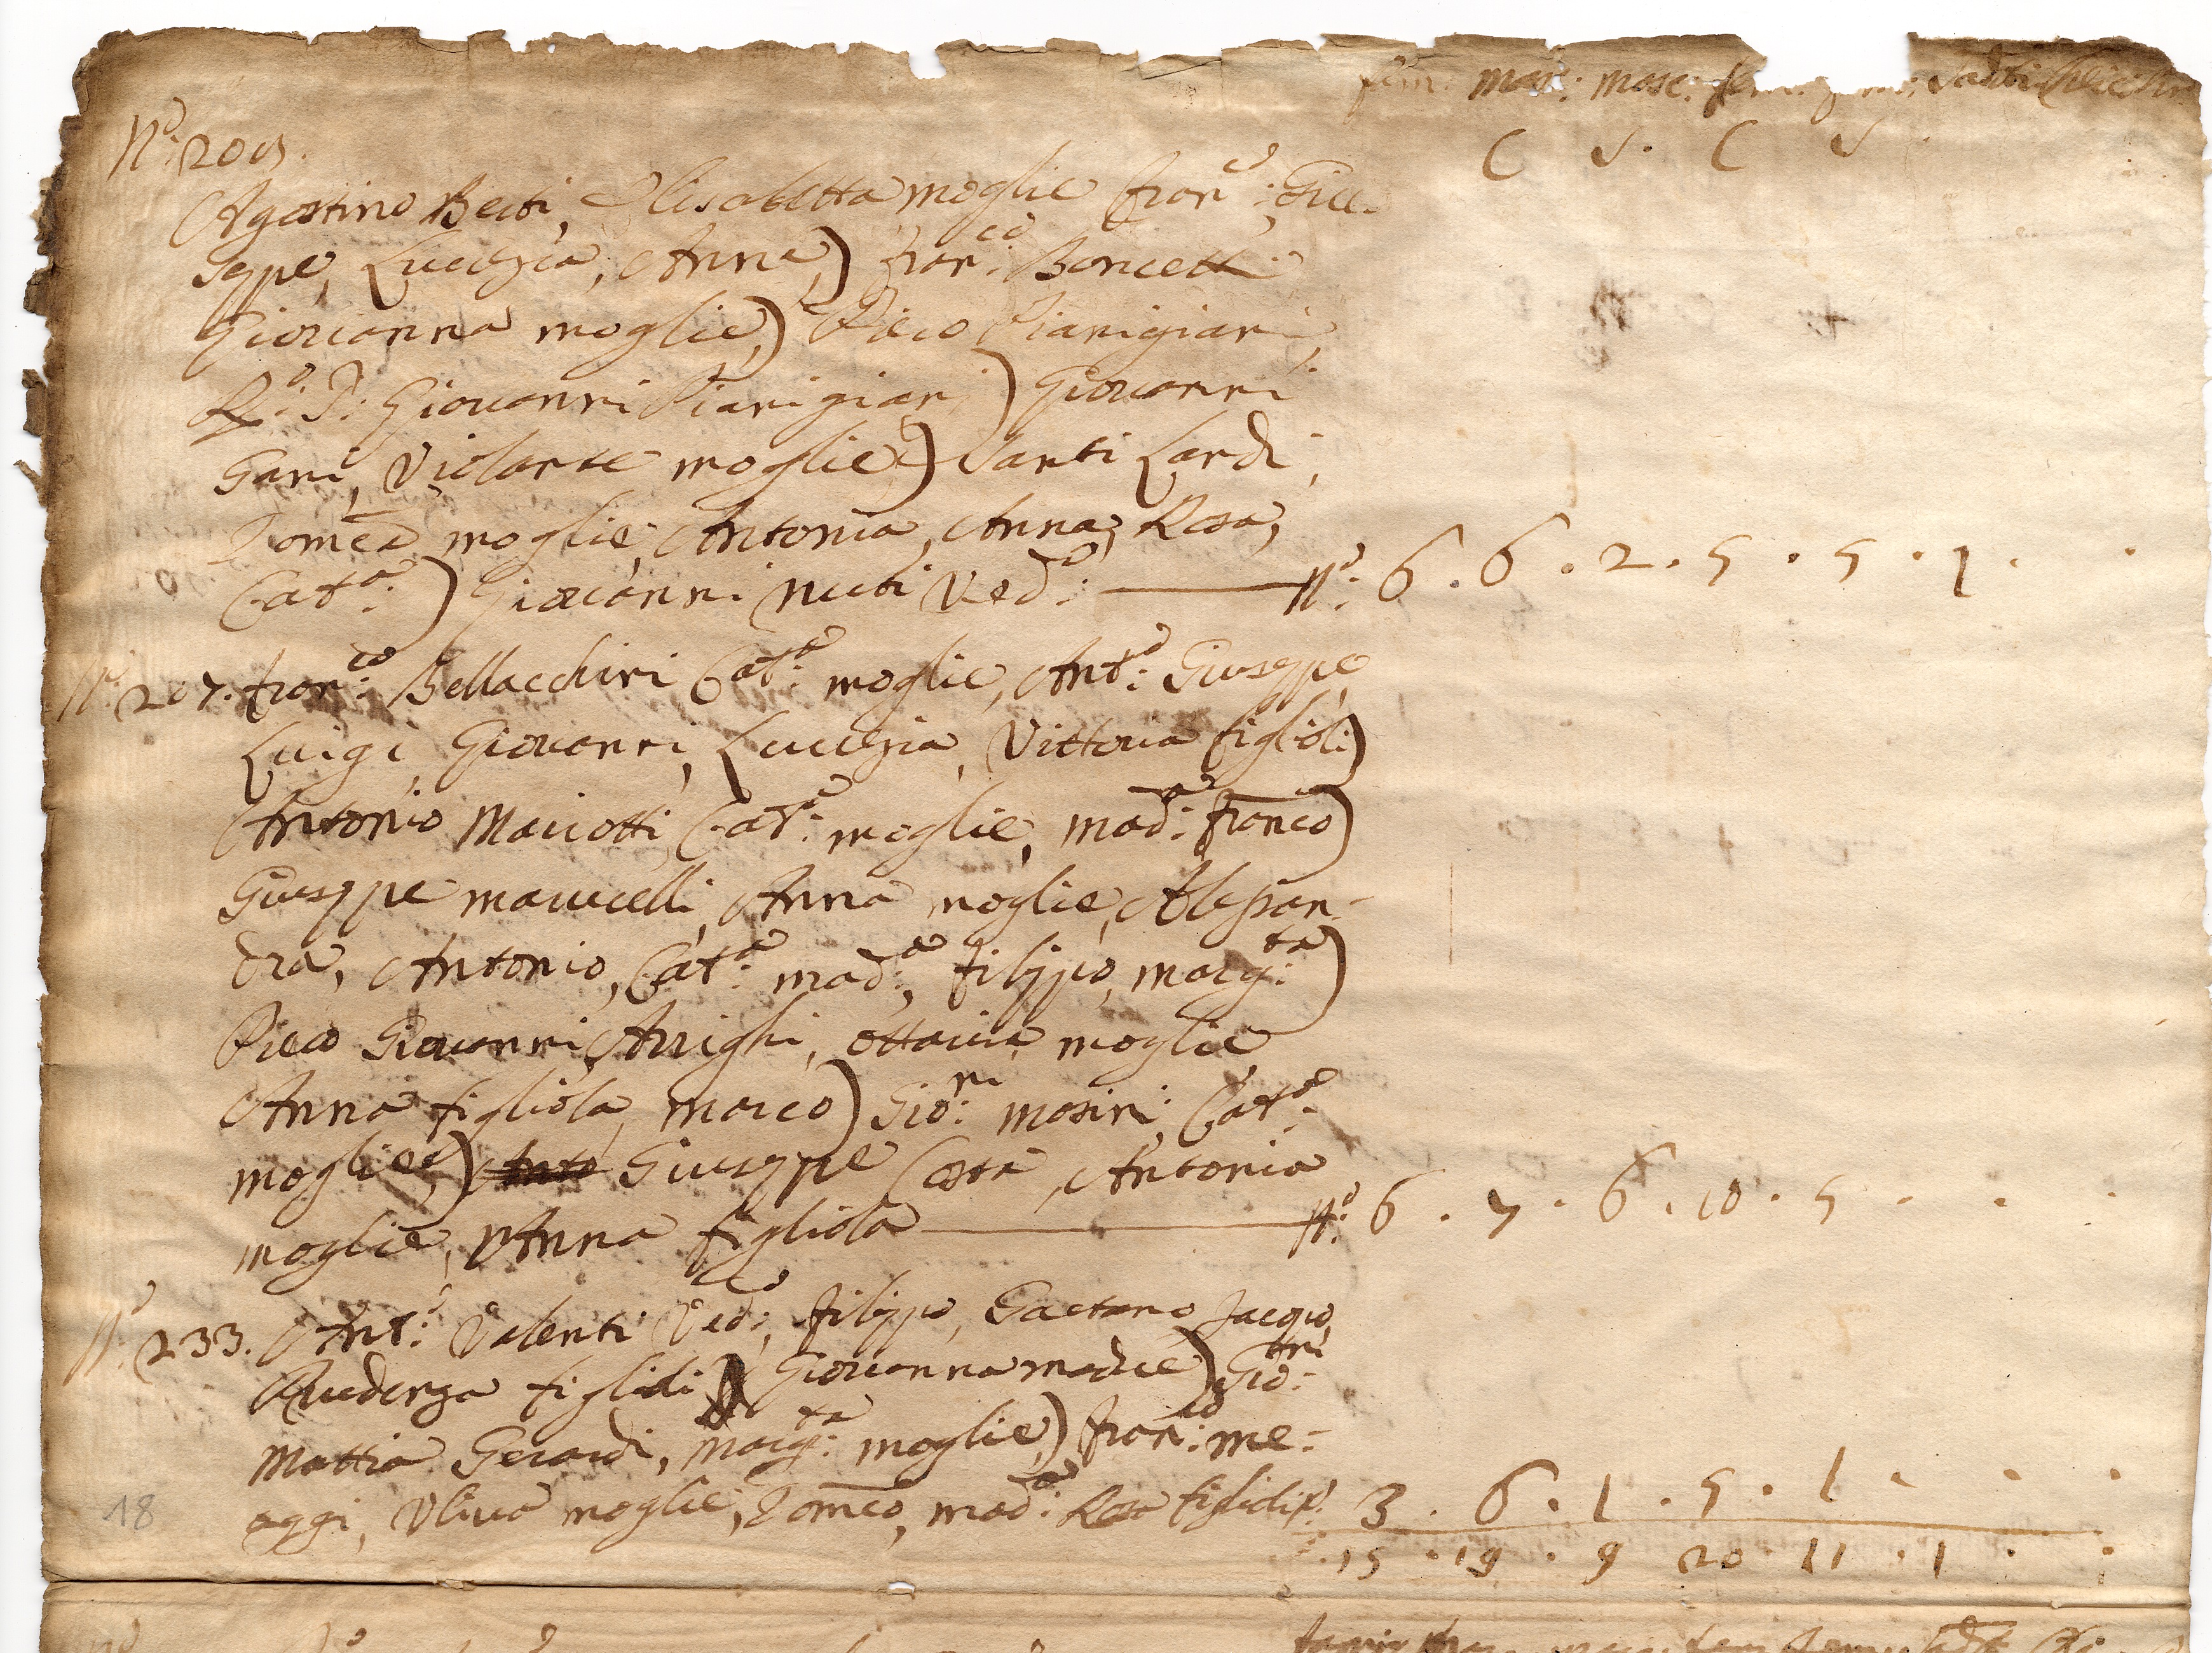 fam: mas: masc: fem: Sacti: Cleric:
C S. C S.
No: 205.
Agostino Berti, Elisabetta moglie Franco: Giu-
seppe, Lucrezia, Anna,) Franco: Boncetti
Giovanna moglie,) Piero Piangiani,
Rdo: P: Giovanni Piangiani) Giovanni
Gani, Violante moglie,) Santi Lardi,
Domca moglie, Antonia, Anna, Rosa,
Cata:) Giovanni Nuti Vedo: No: 6 . 6 . 2 . 5 . 5 . 1 .
No: 207. Franco: Bellacchini Cata: moglie, Anto: Giuseppe
Luigi, Giovanni, Lucrezia, Vittoria figlioli)
Antonio Mariotti, Cata: moglie, Mada: Franco)
Giuseppe Marucelli, Anna moglie, Alessan-
dra, Antonio, Cata: Mada:, Filippo, Margta:)
Piero Giovanni Arrighi, Ottavia moglie
Anna figliola, Marco) Gioni: Masini, Cata:
moglie,) Anto Giuseppe Costa, Antonia
moglie, Anna figliola No: 6 . 7 . 6 . 10 . 5 . . .
No: 233. Anto: Valenti Vedo:, Filippo, Gaetano Jacopo,
figlioli Giovanna madre) Gioni:
Mattia Gerardi, Margta: moglie,) Franco: Me-
aggi, Uliva moglie, Domco, Mada: Rosa figlioli No: 3 . 6 . 1 . 5 . 1 . . .
15 . 19 . 9 20 . 11 . 1 . .
18